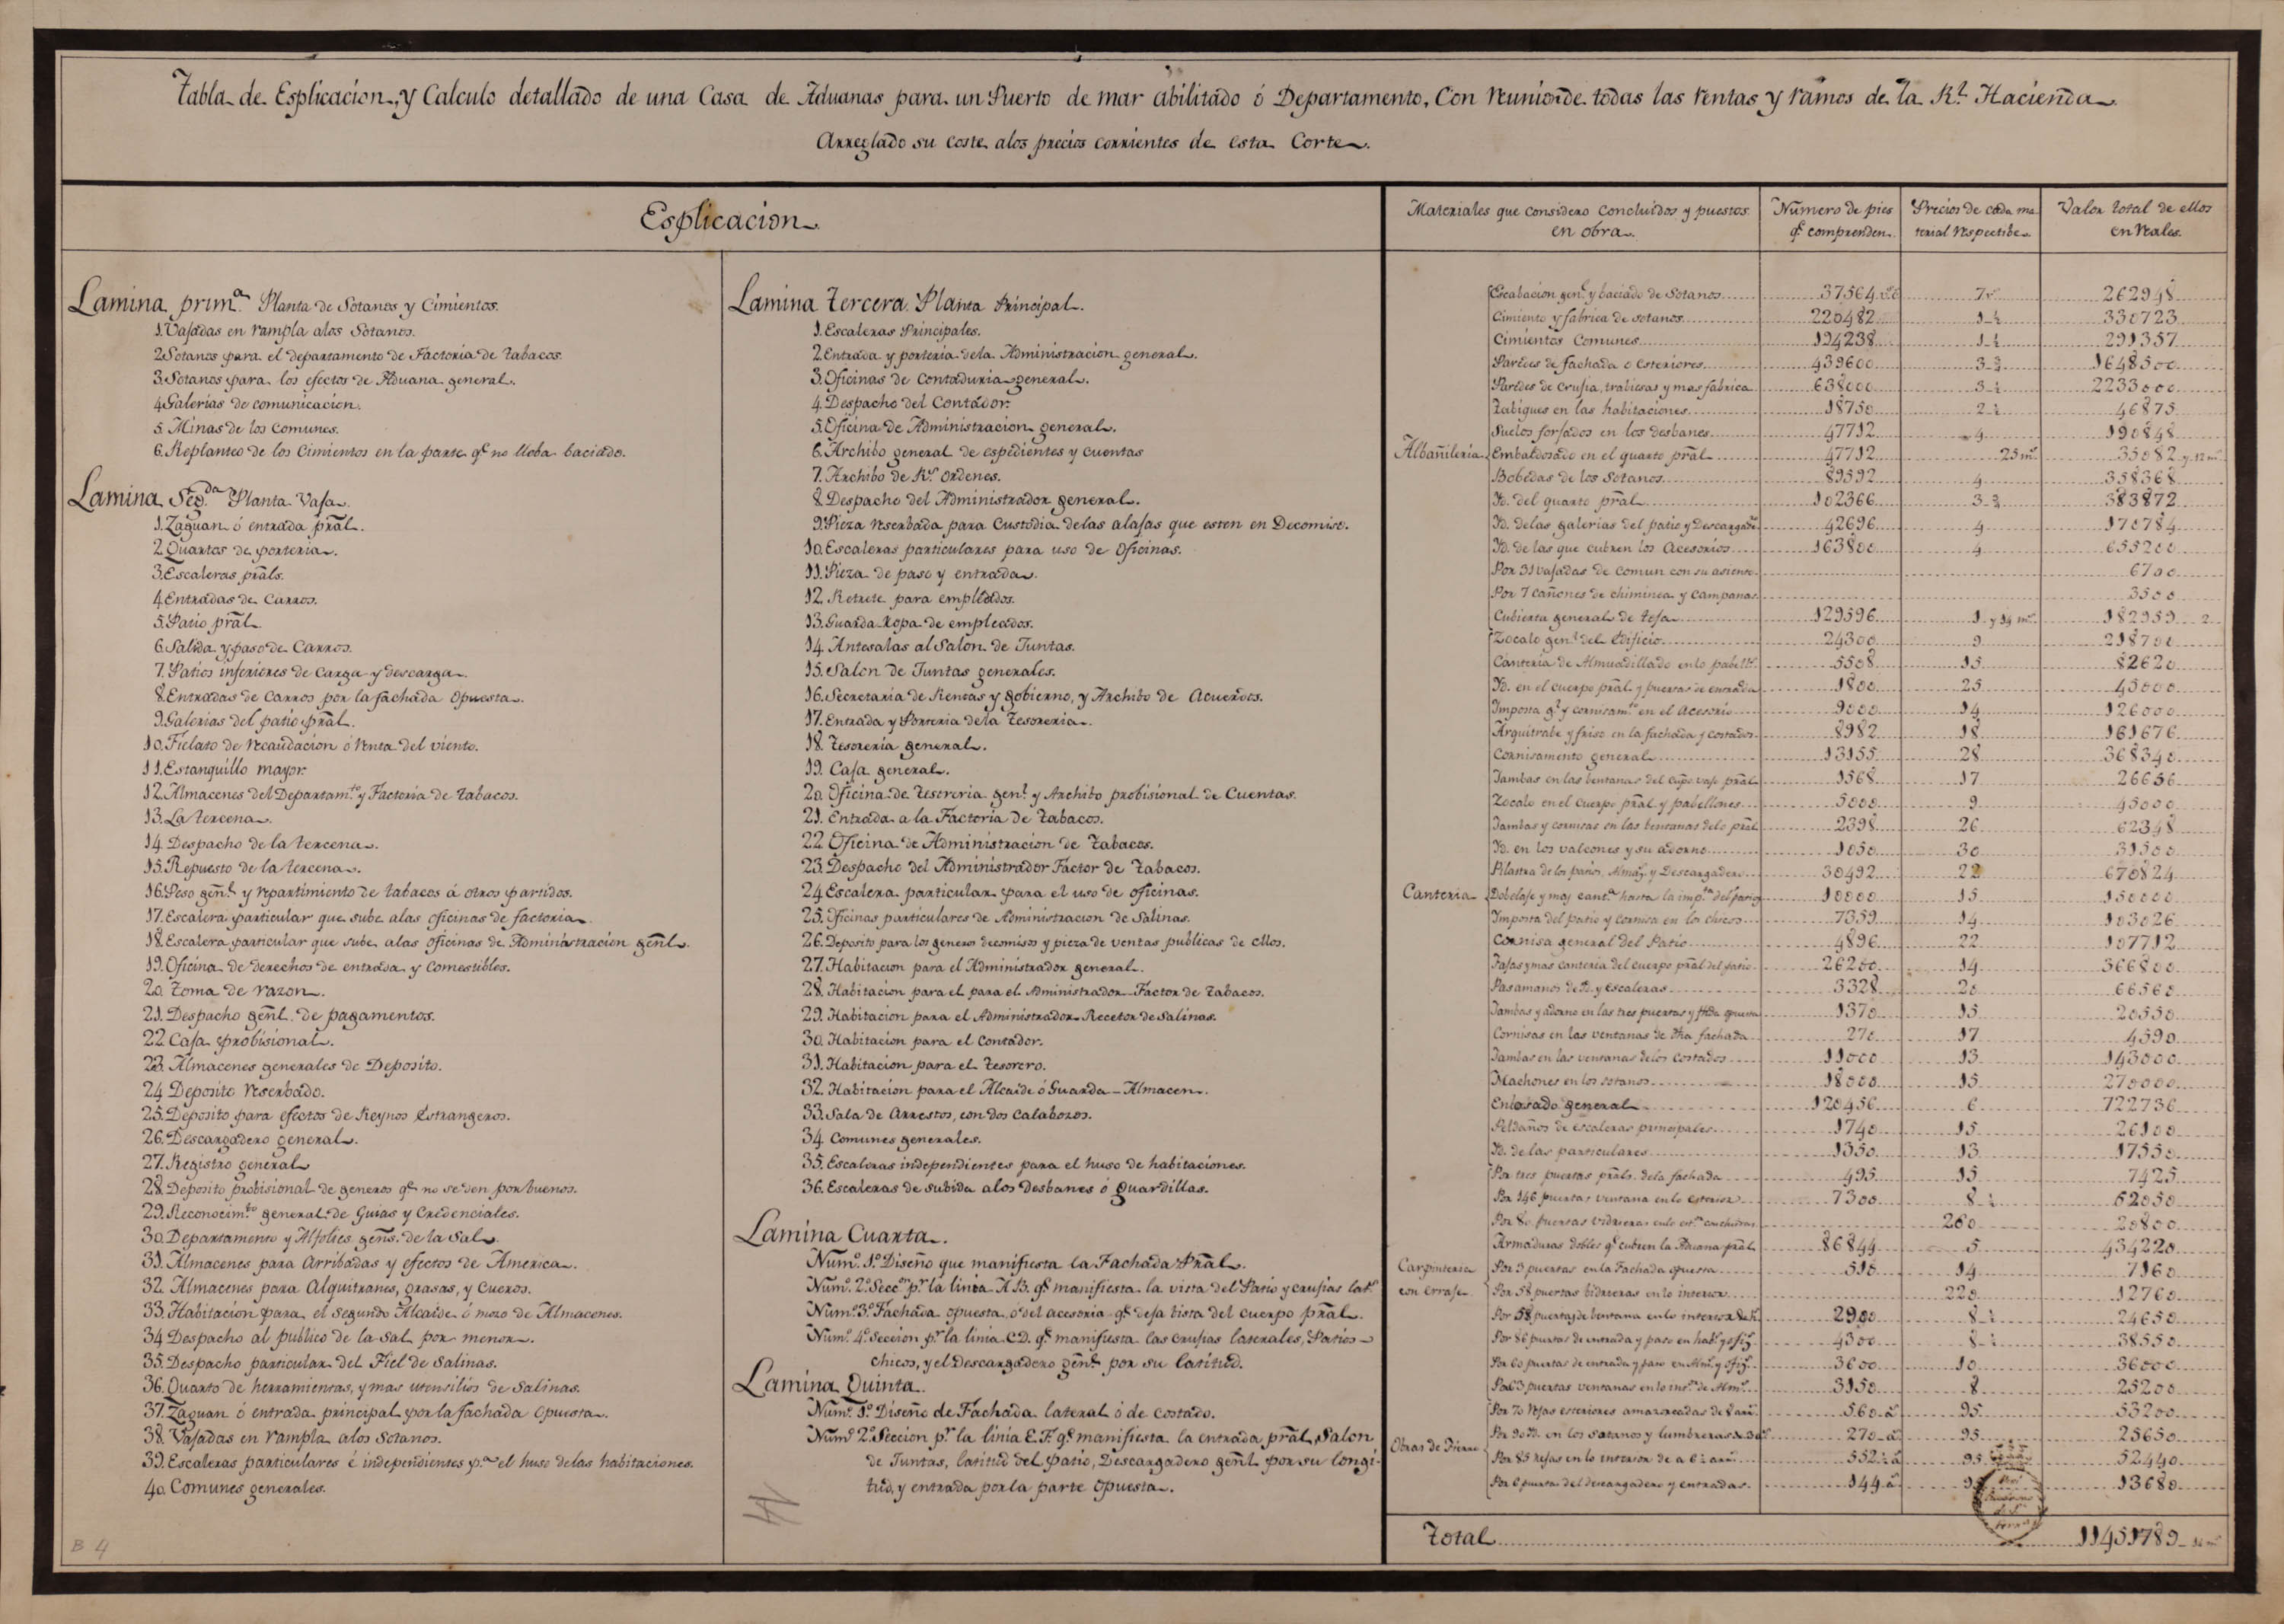 Tabla de Esplicacion, y Calculo detallado de una Casa de Aduanas para un Puerto de mar abilitado ó Departamento, Con reunion de todas las rentas y ramos de la Rl. Hacienda
Arreglado su coste alos precios corrientes de esta Corte.
Esplicacion.
Lamina prim.a Planta de Sotanos y Cimientos.
1. Vajadas en rampla alos Sotanos.
2. Sotanos para el departamento de Factoria de tabacos.
3. Sotanos para los efectos de Aduana general.
4. Galerias de comunicacion.
5. Minas de los Comunes.
6. Replanteo de los Cimientos en la parte q.e no lleba baciado.
Lamina Seg.da Planta Vaja.
1. Zaguan ó entrada prãl.
2. Quartos de porteria.
3. Escaleras prãls.
4. Entradas de Carros.
5. Patio prãl.
6. Salida y paso de Carros.
7. Patios inferiores de Carga y descarga.
8. Entradas de Carros por la fachada opuesta.
9. Galerias del patio prãl.
10. Fielato de recaudacion ó renta del viento.
11. Estanquillo mayor.
12. Almacenes del Departam.to y Factoria de tabacos.
13. La tercena.
14. Despacho de la tercena.
15. Repuesto de la tercena.
16. Peso gẽnl. y repartimiento de tabacos á otros partidos.
17. Escalera particular que sube alas oficinas de factoria.
18. Escalera particular que sube alas oficinas de Administracion gẽnl.
19. Oficina de derechos de entrada y Comestibles.
20. Toma de razon.
21. Despacho gẽnl. de pagamentos.
22. Caja probisional.
23. Almacenes generales de Deposito.
24. Deposito reserbado.
25. Deposito para efectos de Reynos Estrangeros.
26. Descargadero general.
27. Registro general
28. Deposito probisional de generos q.e no se den por buenos.
29. Reconocim.to general de Guias y Credenciales.
30. Departamento y Alfolies gẽns. de la Sal.
31. Almacenes para arribadas y efectos de America.
32. Almacenes para Alquitranes, grasas, y Cueros.
33. Habitacion para el Segundo Alcaide ó mozo de Almacenes.
34. Despacho al publico de la Sal por menor.
35. Despacho particular del Fiel de Salinas.
36. Quarto de herramientas, y mas utensilios de Salinas.
37. Zaguan ó entrada principal por la fachada opuesta.
38. Vajadas en rampla alos Sotanos.
39. Escaleras particulares é independientes p.a el huso delas habitaciones.
40. Comunes generales.
B 4
Lamina tercera. Planta Principal.
1. Escaleras Principales.
2. Entrada y porteria dela Administracion general.
3. Oficinas de Contaduria general.
4. Despacho del Contador.
5. Oficina de Administracion general.
6. Archibo general de espedientes y cuentas
7. Archibo de R.s ordenes.
8. Despacho del Administrador general.
9. Pieza reserbada para Custodia delas alajas que esten en Decomiso.
10. Escaleras particulares para uso de Oficinas.
11. Pieza de paso y entrada.
12. Retrete para empleados.
13. Guarda Ropa de empleados.
14. Antesalas al Salon de Juntas.
15. Salon de Juntas generales.
16. Secretaria de Rentas y gobierno, y Archibo de acuerdos.
17. Entrada y Porteria dela Tesoreria.
18. Tesoreria general.
19. Caja general.
20. Oficina de Tesoreria genl. y Archibo probisional de Cuentas.
21. Entrada a la Factoria de tabacos.
22. Oficina de Administracion de tabacos.
23. Despacho del Administrador Factor de tabacos.
24. Escalera particular para el uso de oficinas.
25. Oficinas particulares de Administracion de Salinas.
26. Deposito para los generos decomisos y pieza de ventas publicas de ellos.
27. Habitacion para el Administrador general.
28. Habitacion para el para el Administrador Factor de tabacos.
29. Habitacion para el Administrador Recetor de Salinas.
30. Habitacion para el Contador.
31. Habitacion para el tesorero.
32. Habitacion para el Alcaide ó Guarda-Almacen.
33. Sala de arrestos, con dos calabozos.
34. Comunes generales.
35. Escaleras independientes para el huso de habitaciones.
36. Escaleras de subida alos Desbanes ó guardillas.
Lamina Cuarta.
Num.o 1.o Diseño que manifiesta la Fachada Prãl.
Num.o 2.o Secc.on p.r la linia A.B. q.e manifiesta la vista del Patio y crujias lat.s
Num.o 3.o Fachada opuesta ó del acesoria q.e deja bista del cuerpo prãl.
Num.o 4.o Seccion p.r la linia C.D. q.e manifiesta las Crujias laterales, Patios
chicos, y el Descargadero gẽnl. por su latitud.
Lamina Quinta.
Num.o 1.o Diseño de Fachada lateral ó de costado.
Num.o 2.o Seccion p.r la linia E.F. q.e manifiesta la entrada prãl, Salon
de Juntas, latitud del patio, Descargadero gẽnl. por su longi-
tud, y entrada por la parte opuesta.
Materiales que considero concluidos y puestos en obra. Número de pies q.e comprenden. Precios de cada material respectibe. Valor total de ellos en reales.
Albañileria
Escabacion gen.l y baciado de Sotanos 37564 7 262948
Cimiento y fabrica de sotanos 220482 1 ½ 330723
Cimientos Comunes 194238 1 ½ 291357
Paredes de fachada o esteriores 439600 3 ¾ 1648500
Paredes de crujia, trabiesas y mas fabrica 638000 3 ½ 2233000
Tabiques en las habitaciones 18750 2 ½ 46875
Suelos forjados en los desbanes 47712 4 190848
Embaldosado en el quarto prãl 47712 25 m.s 35082 y 12 m.s
Bobedas de los Sotanos 89592 4 358368
Yd. del quarto prãl 102366 3 ¾ 383872
Yd. delas galerias del patio y Descargad.o 42696 4 170784
Yd. de las que cubren los acesorios 163800 4 655200
Por 31 vajadas de comun con su asiento 6700
Por 7 cañones de chiminea y campanas 3500
Cubierta general de teja 129596 1 y 14 m.s 182959 2
Canteria
Zocalo gen.l del edificio 24300 9 218700
Canteria de Almuadillado en lo pabell.s 5508 15 82620
Yd. en el cuerpo prãl. y puertas de entrada 1800 25 45000
Imposta g.l y cornisam.to en el acesorio 9000 14 126000
Arquitrabe y friso en la fachada y costados 8982 18 161676
Cornisamento general 13155 28 368340
Jambas en las bentanas del cuerpo vajo prãl 1568 17 26656
Zocalo en el cuerpo prãl y pabellones 5000 9 45000
Jambas y cornisas en las bentanas delo prãl 2398 26 62348
Yd. en los valcones y su adorno 1050 30 31500
Pilastra de los patios, Almaz.s y Descargadero 30492 22 670824
Dobelaje y mas cant.a hasta la imp.ta del patio 10000 15 150000
Imposta del patio y cornisa en los chicos 7359 14 103026
Cornisa general del Patio 4896 22 107712
Fajas y mas canteria del cuerpo prãl del patio 26200 14 366800
Pasamanos de Yd. y escaleras 3328 20 66560
Jambas y adorno en las tres puertas y fhda opuesta 1370 15 20550
Cornisas en las ventanas de dha fachada 270 17 4590
Jambas en las ventanas delos costados 11000 13 143000
Machones en los sotanos 18000 15 270000
Enlosado general 120456 6 722736
Peldaños de escaleras principales 1740 15 26100
Yd. de las particulares 1350 13 17550
Carpinteria con erraje
Por tres puertas prãls. dela fachada 495 15 7425
Por 146 puertas ventana en lo esterior 7300 8 ½ 62050
Por 80 puertas vidrieras en lo 260 20800
Armaduras dobles q.e cubren la Aduana prãl 86844 5 434220
Por 3 puertas en la Fachada opuesta 510 14 7160
Por 58 puertas bidrieras en lo interior 220 12760
Por 58 puertas de bentana en lo interior 2900 8 ½ 24650
Por 86 puertas de entrada y paso en hab.s y ofiz.s 4300 8 ½ 38550
Por 60 puertas de entrada y paso en Alm.s y ofiz.s 3600 10 36000
Por 63 puertas ventanas en lo int.r de Alm.s 3150 8 25200
Obras de Fierro
Por 70 rejas esteriores amazoreadas de 8 arr.s 560 a. 95 53200
Por 90 Yd. en los Sotanos y lumbreras 270 a. 95 25650
Por 85 rejas en lo interior de a 6 ½ arr.s 552 ½ a. 95 52440
Por 6 puertas del descargadero y entradas 144 a. 95 13680
Total 11451789